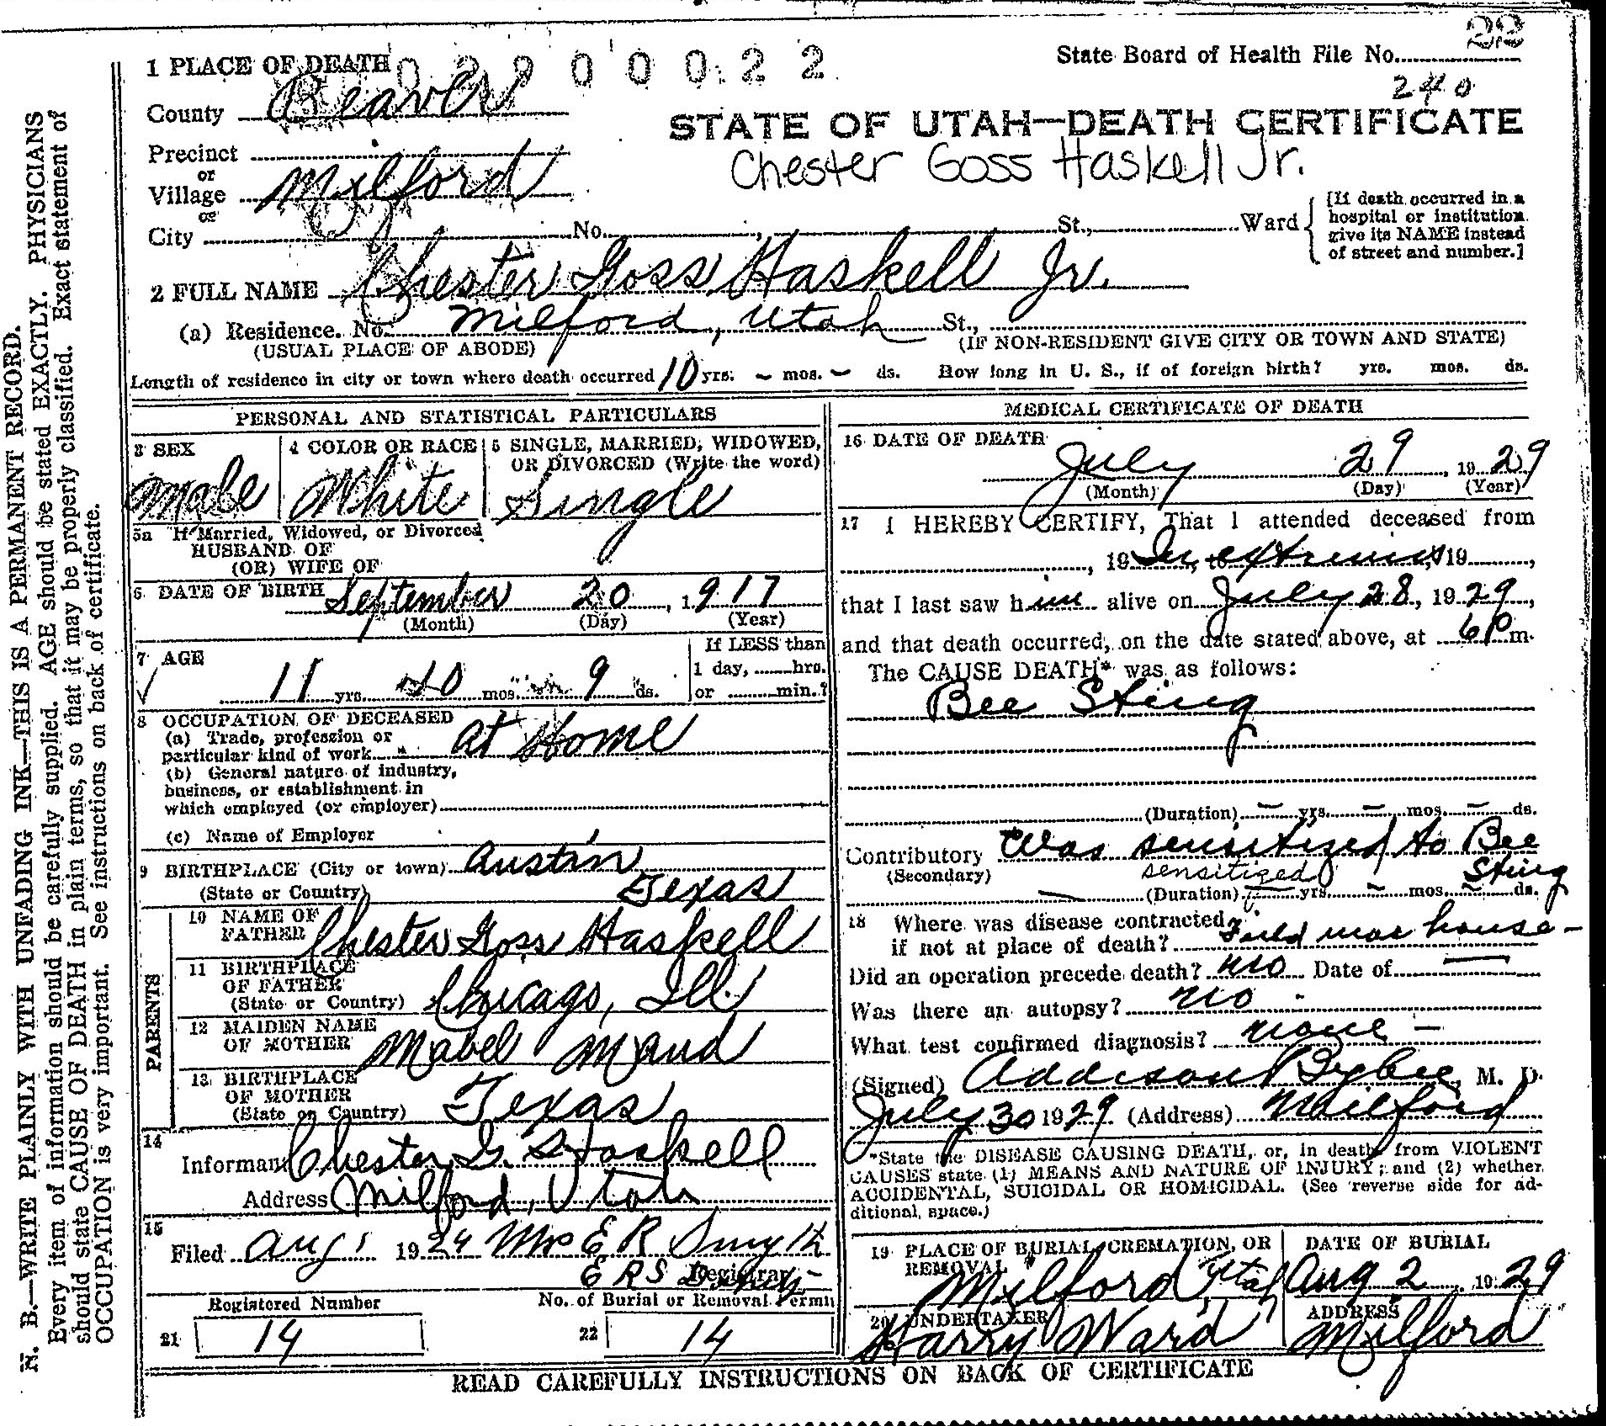 22
State Board of Health File No.
240
0 2 9 0 0 0 2 2
1 PLACE OF DEATH
County Beaver
STATE OF UTAH—DEATH CERTIFICATE
Chester Goss Haskell Jr.
Precinct
or
Village Milford
or
City No. , St., Ward
[If death occurred in a
hospital or institution
give its NAME instead
of street and number.]
2 FULL NAME Chester Goss Haskell Jr.
(a) Residence. No. Milford, Utah St.,
(USUAL PLACE OF ABODE) (IF NON-RESIDENT GIVE CITY OR TOWN AND STATE)
Length of residence in city or town where death occurred 10 yrs. – mos. – ds. How long in U. S., if of foreign birth? yrs. mos. ds.
PERSONAL AND STATISTICAL PARTICULARS
3 SEX
Male
4 COLOR OR RACE
White
5 SINGLE, MARRIED, WIDOWED,
OR DIVORCED (Write the word)
Single
5a If Married, Widowed, or Divorced
HUSBAND OF
(OR) WIFE OF
6 DATE OF BIRTH September 20, 1917
(Month) (Day) (Year)
7 AGE
11 yrs. 10 mos. 9 ds.
If LESS than
1 day, hrs.
or min.?
8 OCCUPATION OF DECEASED
(a) Trade, profession or
particular kind of work at Home
(b) General nature of industry,
business, or establishment in
which employed (or employer)
(c) Name of Employer
9 BIRTHPLACE (City or town) Austin
(State or Country) Texas
PARENTS
10 NAME OF
FATHER Chester Goss Haskell
11 BIRTHPLACE
OF FATHER
(State or Country) Chicago, Ill.
12 MAIDEN NAME
OF MOTHER Mabel Maud
13 BIRTHPLACE
OF MOTHER
(State or Country) Texas
14
Informant Chester G. Haskell
Address Milford, Utah
15
Filed Aug 1 1929 Mrs E R Smyth
E R S Registrar
Registered Number
21 14
No. of Burial or Removal Permit
22 14
MEDICAL CERTIFICATE OF DEATH
16 DATE OF DEATH
July 29, 1929
(Month) (Day) (Year)
17 I HEREBY CERTIFY, That I attended deceased from
, 19 In, to extremis, 19
that I last saw him alive on July 28, 1929,
and that death occurred, on the date stated above, at 6 P m.
The CAUSE DEATH* was as follows:
Bee Sting
(Duration) – yrs. – mos. – ds.
Contributory Was sensitized to Bee
(Secondary) sensitized Sting
(Duration) – yrs. – mos. – ds.
18 Where was disease contracted
if not at place of death? Field near house –
Did an operation precede death? no Date of —
Was there an autopsy? no -
What test confirmed diagnosis? none –
(Signed) Addison Bybee, M. D.
July 30 1929 (Address) Milford
*State the DISEASE CAUSING DEATH, or, in death from VIOLENT
CAUSES state (1) MEANS AND NATURE OF INJURY; and (2) whether
ACCIDENTAL, SUICIDAL OR HOMICIDAL. (See reverse side for ad-
ditional space.)
19 PLACE OF BURIAL, CREMATION, OR
REMOVAL
Milford Utah
DATE OF BURIAL
Aug 2 1929
20 UNDERTAKER
Harry Ward
ADDRESS
Milford
READ CAREFULLY INSTRUCTIONS ON BACK OF CERTIFICATE
N. B.—WRITE PLAINLY WITH UNFADING INK—THIS IS A PERMANENT RECORD.
Every item of information should be carefully supplied. AGE should be stated EXACTLY. PHYSICIANS
should state CAUSE OF DEATH in plain terms, so that it may be properly classified. Exact statement of
OCCUPATION is very important. See instructions on back of certificate.